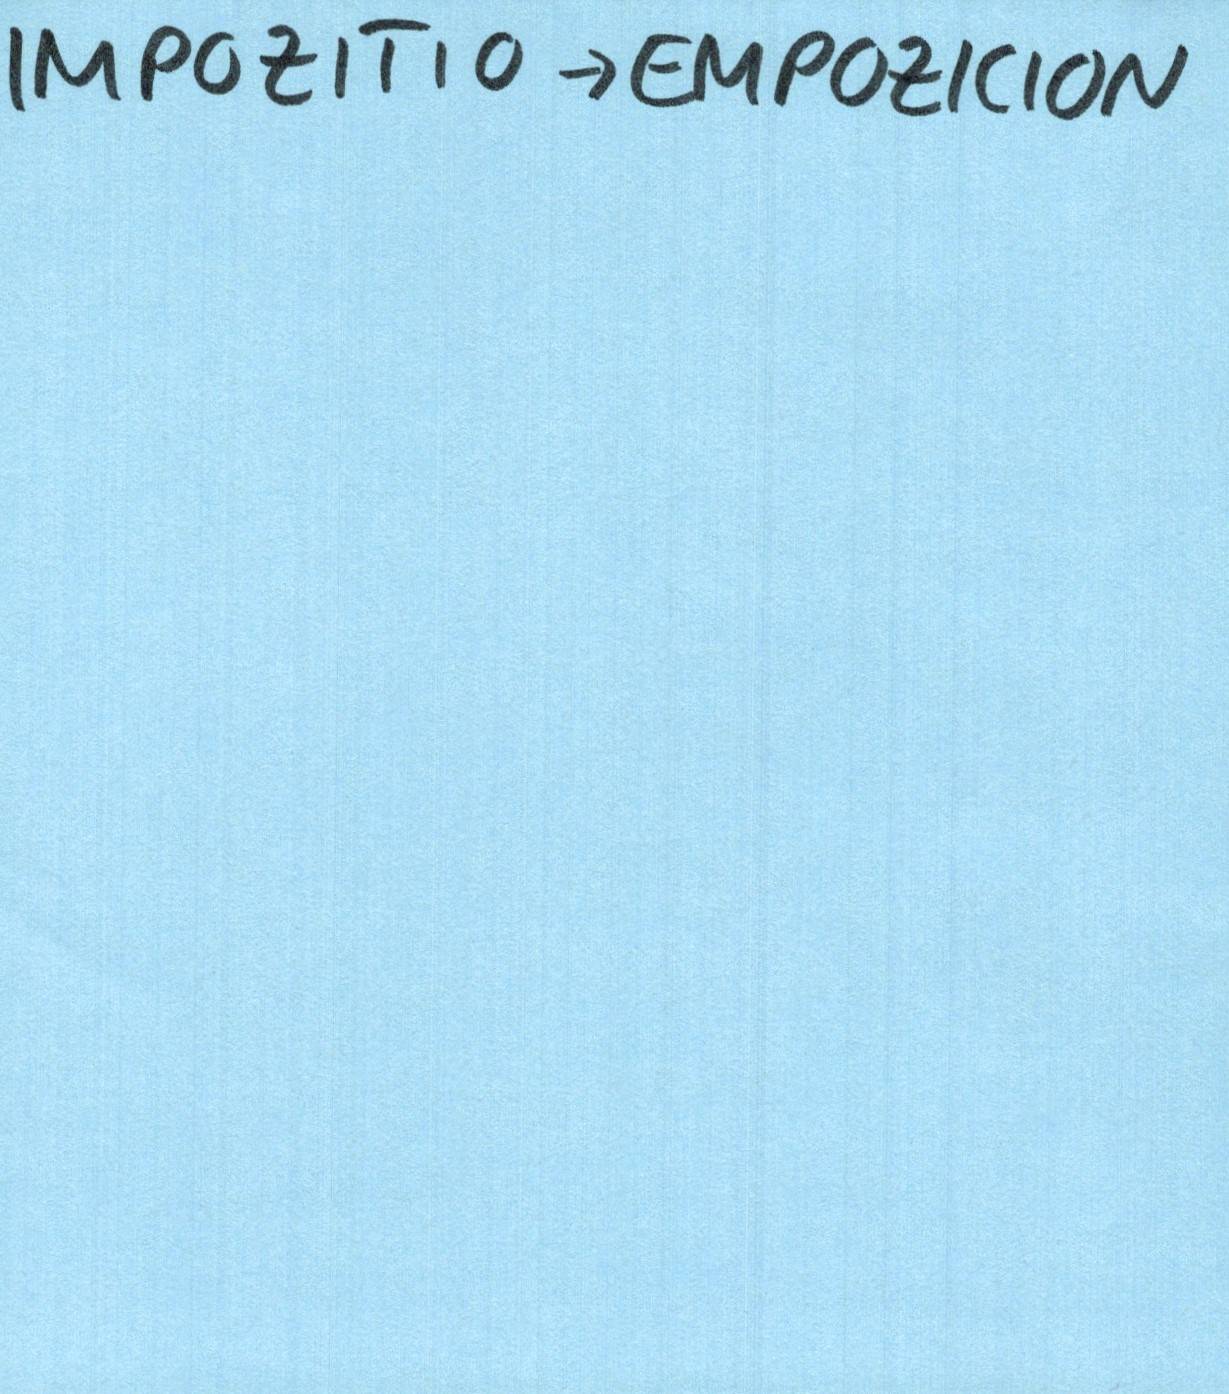 IMPOZITIO → EMPOZICION